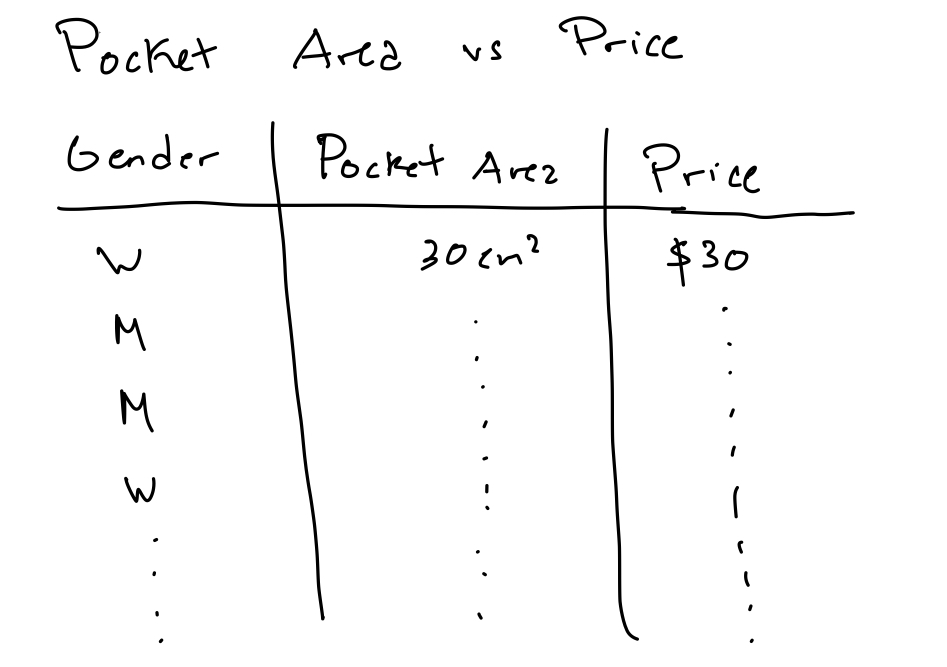 Pocket Area vs Price
Gender Pocket Area Price
W 30 cm² $30
M
M
W